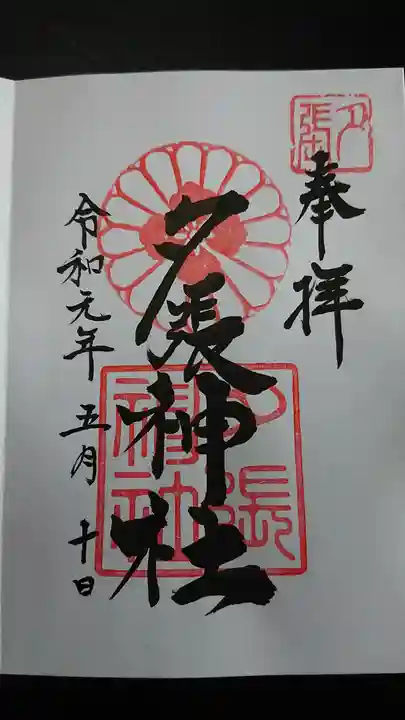 奉拝
夕張
夕張神社
夕張神社
令和元年 五月 十日